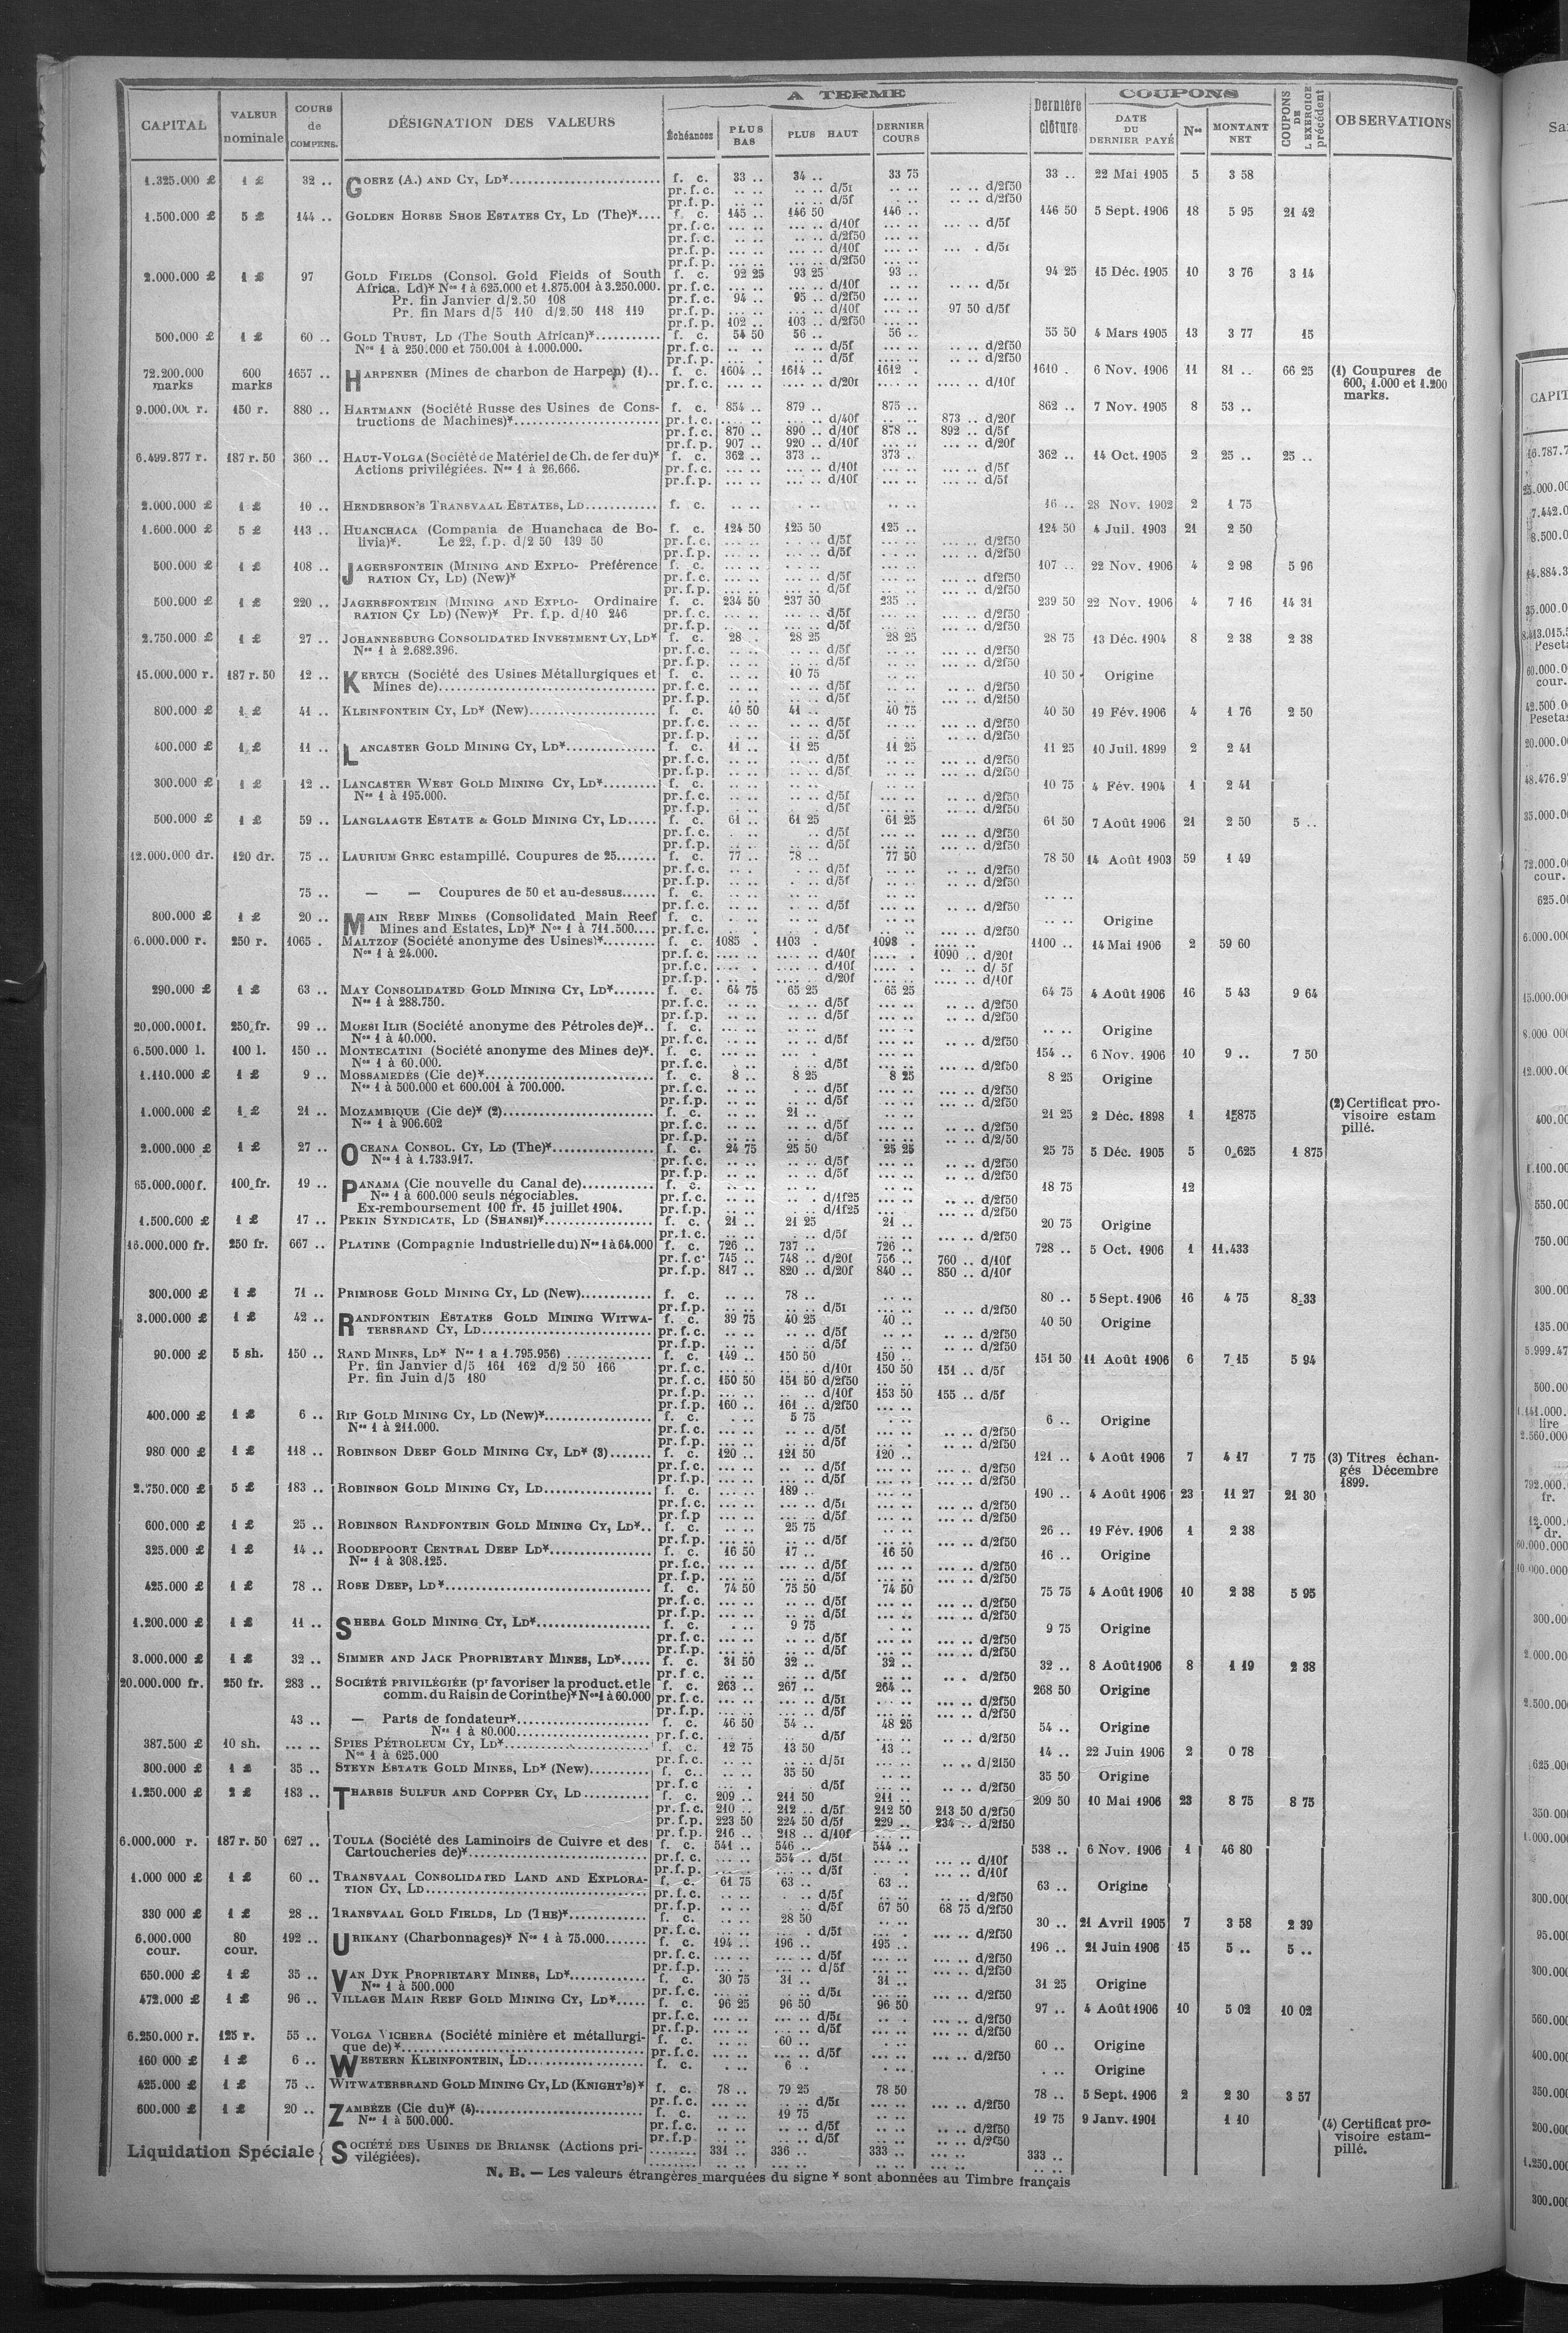 CAPITAL | VALEUR nominale | COURS de COMPENS. | DÉSIGNATION DES VALEURS | A TERME | Échéances | PLUS BAS | PLUS HAUT | DERNIER COURS | Dernière clôture | COUPONS | DATE DU DERNIER PAYÉ | Nos | MONTANT NET | COUPONS DE L'EXERCICE précédent | OBSERVATIONS
1.325.000 £ 1 £ 32 .. GOERZ (A.) AND CY, LD* f. c. 33 .. 34 .. 33 75 33 .. 22 Mai 1905 5 3 58
pr. f. c. d/5f d/2f50
pr. f. p. d/5f d/2f50
1.500.000 £ 5 £ 144 .. GOLDEN HORSE SHOE ESTATES CY, LD (The)* f. c. 145 .. 146 50 146 .. 146 50 5 Sept. 1906 18 5 95 21 42
pr. f. c. d/10f d/5f
pr. f. c. d/2f50
pr. f. p. d/10f d/5f
pr. f. p. d/2f50
2.000.000 £ 1 £ 97 GOLD FIELDS (Consol. Gold Fields of South f. c. 92 25 93 25 93 .. 94 25 15 Déc. 1905 10 3 76 3 14
Africa, Ld)* Nos 1 à 625.000 et 1.875.001 à 3.250.000. pr. f. c. d/10f d/5f
Pr. fin Janvier d/2.50 108 pr. f. c. 94 .. 95 .. d/2f50
Pr. fin Mars d/5 110 d/2.50 118 119 pr. f. p. d/10f 97 50 d/5f
pr. f. p. 102 .. 103 .. d/2f50
500.000 £ 1 £ 60 .. GOLD TRUST, LD (The South African)* f. c. 54 50 56 .. 56 .. 55 50 4 Mars 1905 13 3 77 15
Nos 1 à 250.000 et 750.001 à 1.000.000. pr. f. c. d/5f d/2f50
pr. f. p. d/5f d/2f50
72.200.000 marks 600 marks 1657 .. HARPENER (Mines de charbon de Harpen) (1).. f. c. 1604 .. 1614 .. 1612 . 1610 . 6 Nov. 1906 11 81 .. 66 25 (1) Coupures de 600, 1.000 et 1.200 marks.
pr. f. c. d/20f d/10f
9.000.000 r. 150 r. 880 .. HARTMANN (Société Russe des Usines de Cons- f. c. 854 .. 879 .. 875 .. 862 .. 7 Nov. 1905 8 53 ..
tructions de Machines)* pr. f. c. d/40f 873 .. d/20f
pr. f. c. 870 .. 890 .. d/10f 878 .. 892 .. d/5f
pr. f. p. 907 .. 920 .. d/10f d/20f
6.499.877 r. 187 r. 50 360 .. HAUT-VOLGA (Société de Matériel de Ch. de fer du)* f. c. 362 .. 373 .. 373 .. 362 .. 14 Oct. 1905 2 25 .. 25 ..
Actions privilégiées. Nos 1 à 26.666. pr. f. c. d/10f d/5f
pr. f. p. d/10f d/5f
2.000.000 £ 1 £ 10 .. HENDERSON'S TRANSVAAL ESTATES, LD f. c. 16 .. 28 Nov. 1902 2 1 75
1.600.000 £ 5 £ 113 .. HUANCHACA (Compania de Huanchaca de Bo- f. c. 124 50 125 50 125 .. 124 50 4 Juil. 1903 21 2 50
livia)*. Le 22, f.p. d/2 50 139 50 pr. f. c. d/5f d/2f50
pr. f. p. d/5f d/2f50
500.000 £ 1 £ 108 .. JAGERSFONTEIN (MINING AND EXPLO- Préférence f. c. 107 .. 22 Nov. 1906 4 2 98 5 96
RATION CY, LD) (New)* pr. f. c. d/5f df2f50
pr. f. p. d/5f d/2f50
500.000 £ 1 £ 220 .. JAGERSFONTEIN (MINING AND EXPLO- Ordinaire f. c. 234 50 237 50 235 .. 239 50 22 Nov. 1906 4 7 16 14 31
RATION CY LD) (New)* Pr. f.p. d/10 246 pr. f. c. d/5f d/2f50
pr. f. p. d/5f d/2f50
2.750.000 £ 1 £ 27 .. JOHANNESBURG CONSOLIDATED INVESTMENT CY, LD* f. c. 28 . 28 25 28 25 28 75 13 Déc. 1904 8 2 38 2 38
Nos 1 à 2.682.396. pr. f. c. d/5f d/2f50
pr. f. p. d/5f d/2f50
15.000.000 r. 187 r. 50 12 .. KERTCH (Société des Usines Métallurgiques et f. c. 10 75 10 50 Origine
Mines de) pr. f. c. d/5f d/2f50
pr. f. p. d/5f d/2f50
800.000 £ 1 £ 41 .. KLEINFONTEIN CY, LD* (New) f. c. 40 50 41 .. 40 75 40 50 19 Fév. 1906 4 1 76 2 50
pr. f. c. d/5f d/2f50
pr. f. p. d/5f d/2f50
400.000 £ 1 £ 11 .. LANCASTER GOLD MINING CY, LD* f. c. 11 .. 11 25 11 25 11 25 10 Juil. 1899 2 2 41
pr. f. c. d/5f d/2f50
pr. f. p. d/5f d/2f50
300.000 £ 1 £ 12 .. LANCASTER WEST GOLD MINING CY, LD* f. c. 10 75 4 Fév. 1904 1 2 41
Nos 1 à 195.000. pr. f. c. d/5f d/2f50
pr. f. p. d/5f d/2f50
500.000 £ 1 £ 59 .. LANGLAAGTE ESTATE & GOLD MINING CY, LD f. c. 61 .. 61 25 61 25 61 50 7 Août 1906 21 2 50 5 ..
pr. f. c. d/5f d/2f50
pr. f. p. d/5f d/2f50
12.000.000 dr. 120 dr. 75 .. LAURIUM GREC estampillé. Coupures de 25 f. c. 77 .. 78 .. 77 50 78 50 14 Août 1903 59 1 49
pr. f. c. d/5f d/2f50
pr. f. p. d/5f d/2f50
75 .. — — Coupures de 50 et au-dessus f. c.
pr. f. c. d/5f d/2f50
800.000 £ 1 £ 20 .. MAIN REEF MINES (Consolidated Main Reef f. c. Origine
Mines and Estates, LD)* Nos 1 à 711.500 pr. f. c. d/5f d/2f50
6.000.000 r. 250 r. 1065 . MALTZOF (Société anonyme des Usines)* f. c. 1085 . 1103 . 1098 . 1100 .. 14 Mai 1906 2 59 60
Nos 1 à 24.000. pr. f. c. d/40f 1090 .. d/20f
pr. f. c. d/10f d/ 5f
pr. f. p. d/20f d/10f
290.000 £ 1 £ 63 .. MAY CONSOLIDATED GOLD MINING CY, LD* f. c. 64 75 65 25 65 25 64 75 4 Août 1906 16 5 43 9 64
Nos 1 à 288.750. pr. f. c. d/5f d/2f50
pr. f. p. d/5f d/2f50
20.000.000 f. 250 fr. 99 .. MOESI ILIR (Société anonyme des Pétroles de)*.. f. c. Origine
Nos 1 à 40.000. pr. f. c. d/5f d/2f50
6.500.000 l. 100 l. 150 .. MONTECATINI (Société anonyme des Mines de)*. f. c. 154 .. 6 Nov. 1906 10 9 .. 7 50
Nos 1 à 60.000. pr. f. c. d/5f d/2f50
1.110.000 £ 1 £ 9 .. MOSSAMEDÉS (Cie de)* f. c. 8 .. 8 25 8 25 8 25 Origine
Nos 1 à 500.000 et 600.001 à 700.000. pr. f. c. d/5f d/2f50
pr. f. p. d/5f d/2f50
1.000.000 £ 1 £ 21 .. MOZAMBIQUE (Cie de)* (2) f. c. 21 .. 21 25 2 Déc. 1898 1 (2) Certificat provisoire estam pillé.
Nos 1 à 906.602 pr. f. c. d/5f d/2f50
pr. f. p. d/5f d/2/50
2.000.000 £ 1 £ 27 .. OCEANA CONSOL. CY, LD (The)* f. c. 24 75 25 50 25 25 25 75 5 Déc. 1905 5 0.625 1 875
Nos 1 à 1.733.917. pr. f. c. d/5f d/2f50
pr. f. p. d/5f d/2f50
65.000.000 f. 100 fr. 19 .. PANAMA (Cie nouvelle du Canal de) f. c. 18 75 12
Nos 1 à 600.000 seuls négociables. pr. f. c. d/1f25 d/2f50
Ex-remboursement 100 fr. 15 juillet 1904. pr. f. p. d/1f25 d/2f50
1.500.000 £ 1 £ 17 .. PEKIN SYNDICATE, LD (SHANSI)* f. c. 21 .. 21 25 21 .. 20 75 Origine
pr. f. c. d/5f d/2f50
16.000.000 fr. 250 fr. 667 .. PLATINE (Compagnie Industrielle du) Nos 1 à 64.000 f. c. 726 .. 737 .. 726 .. 728 .. 5 Oct. 1906 1 11.433
pr. f. c. 745 .. 748 .. d/20f 756 .. 760 .. d/10f
pr. f. p. 817 .. 820 .. d/20f 840 .. 850 .. d/10f
300.000 £ 1 £ 71 .. PRIMROSE GOLD MINING CY, LD (New) f. c. 78 .. 80 .. 5 Sept. 1906 16 4 75 8.33
pr. f. p. d/5f d/2f50
3.000.000 £ 1 £ 42 .. RANDFONTEIN ESTATES GOLD MINING WITWA- f. c. 39 75 40 25 40 .. 40 50 Origine
TERSRAND CY, LD pr. f. c. d/5f d/2f50
pr. f. p. d/5f d/2f50
90.000 £ 5 sh. 150 .. RAND MINES, LD* Nos 1 a 1.795.956) f. c. 149 .. 150 50 150 .. 151 50 11 Août 1906 6 7.15 5 94
Pr. fin Janvier d/5 161 162 d/2 50 166 pr. f. c. d/10f 150 50 151 .. d/5f
Pr. fin Juin d/5 180 pr. f. c. 150 50 151 50 d/2f50
pr. f. p. d/10f 153 50 155 .. d/5f
pr. f. p. 160 .. 161 .. d/2f50
400.000 £ 1 £ 6 .. RIP GOLD MINING CY, LD (New)* f. c. 5 75 6 .. Origine
Nos 1 à 211.000. pr. f. c. d/5f d/2f50
pr. f. p. d/5f d/2f50
980 000 £ 1 £ 118 .. ROBINSON DEEP GOLD MINING CY, LD* (3) f. c. 120 .. 121 50 120 .. 121 .. 4 Août 1906 7 4 17 7 75 (3) Titres échangés Décembre 1899.
pr. f. c. d/5f d/2f50
pr. f. p. d/5f d/2f50
2.750.000 £ 5 £ 183 .. ROBINSON GOLD MINING CY, LD f. c. 189 .. 190 .. 4 Août 1906 23 11 27 21 30
pr. f. c. d/5f d/2f50
pr. f. p d/5f d/2f50
600.000 £ 1 £ 25 .. ROBINSON RANDFONTEIN GOLD MINING CY, LD*.. f. c. 25 75 26 .. 19 Fév. 1906 1 2 38
pr. f. p. d/5f d/2f50
325.000 £ 1 £ 14 .. ROODEPOORT CENTRAL DEEP LD* f. c. 16 50 17 .. 16 50 16 .. Origine
Nos 1 à 308.125. pr. f. c. d/5f d/2f50
pr. f. p. d/5f d/2f50
425.000 £ 1 £ 78 .. ROSE DEEP, LD* f. c. 74 50 75 50 74 50 75 75 4 Août 1906 10 2 38 5 95
pr. f. c. d/5f d/2f50
pr. f. p. d/5f d/2f50
1.200.000 £ 1 £ 11 .. SHEBA GOLD MINING CY, LD* f. c. 9 75 9 75 Origine
pr. f. c. d/5f d/2f50
pr. f. p. d/5f d/2f50
3.000.000 £ 1 £ 32 .. SIMMER AND JACK PROPRIETARY MINES, LD* f. c. 31 50 32 .. 32 .. 32 .. 8 Août 1906 8 1 19 2 38
pr. f. c. d/5f d/2f50
20.000.000 fr. 250 fr. 283 .. SOCIÉTÉ PRIVILÉGIÉE (pr favoriser la product. et le f. c. 263 .. 267 .. 264 .. 268 50 Origine
comm. du Raisin de Corinthe)* Nos 1 à 60.000 pr. f. c. d/5f d/2f50
pr. f. p. d/5f d/2f50
43 .. — Parts de fondateur* f. c. 46 50 54 .. 48 25 54 .. Origine
Nos 1 à 80.000 pr. f. c. d/5f d/2f50
387.500 £ 10 sh. SPIES PÉTROLEUM CY, LD* f. c. 12 75 13 50 13 .. 14 .. 22 Juin 1906 2 0 78
Nos 1 à 625.000 pr. f. c. d/5f d/2f50
300.000 £ 1 £ 35 .. STEYN ESTATE GOLD MINES, LD* (New) f. c. 35 50 35 50 Origine
pr. f. c d/5f d/2f50
1.250.000 £ 2 £ 183 .. THARSIS SULFUR AND COPPER CY, LD f. c. 209 .. 211 50 211 .. 209 50 10 Mai 1906 23 8 75 8 75
pr. f. c. 210 .. 212 .. d/5f 212 50 213 50 d/2f50
pr. f. p. 223 50 224 50 d/5f 229 .. 234 .. d/2f50
pr. f. p. 216 .. 218 .. d/10f
6.000.000 r. 187 r. 50 627 .. TOULA (Société des Laminoirs de Cuivre et des f. c. 541 .. 546 .. 544 .. 538 .. 6 Nov. 1906 1 46 80
Cartoucheries de)* pr. f. c. 554 .. d/5f d/10f
pr. f. p. d/5f d/10f
1.000 000 £ 1 £ 60 .. TRANSVAAL CONSOLIDATED LAND AND EXPLORA- f. c. 61 75 63 .. 63 .. 63 .. Origine
TION CY, LD pr. f. c. d/5f d/2f50
pr. f. p. d/5f 67 50 68 75 d/2f50
330 000 £ 1 £ 28 .. TRANSVAAL GOLD FIELDS, LD (THE)* f. c. 28 50 30 .. 21 Avril 1905 7 3 58 2 39
pr. f. c. d/5f d/2f50
6.000.000 cour. 80 cour. 192 .. URIKANY (Charbonnages)* Nos 1 à 75.000 f. c. 194 .. 196 .. 195 .. 196 .. 21 Juin 1906 15 5 .. 5 ..
pr. f. c. d/5f d/2f50
pr. f. p. d/5f d/2f50
650.000 £ 1 £ 35 .. VAN DYK PROPRIETARY MINES, LD* f. c. 30 75 31 .. 31 .. 31 25 Origine
Nos 1 à 500.000 pr. f. c. d/5f d/2f50
472.000 £ 1 £ 96 .. VILLAGE MAIN REEF GOLD MINING CY, LD* f. c. 96 25 96 50 96 50 97 .. 4 Août 1906 10 5 02 10 02
pr. f. c. d/5f d/2f50
pr. f. p. d/5f d/2f50
6.250.000 r. 125 r. 55 .. VOLGA VICHERA (Société minière et métallurgi- f. c. 60 .. 60 .. Origine
que de)* pr. f. c. d/5f d/2f50
160 000 £ 1 £ 6 .. WESTERN KLEINFONTEIN, LD f. c. 6 .. Origine
425.000 £ 1 £ 75 .. WITWATERSRAND GOLD MINING CY, LD (KNIGHT'S)* f. c. 78 .. 79 25 78 50 78 .. 5 Sept. 1906 2 2 30 3 57
pr. f. c. d/5f d/2f50
600.000 £ 1 £ 20 .. ZAMBÈZE (Cie du)* (4) f. c. 19 75 19 75 9 Janv. 1901 1 10 (4) Certificat provisoire estampillé.
Nos 1 à 500.000. pr. f. c. d/5f d/2f50
pr. f. p d/5f d/2f50
Liquidation Spéciale { SOCIÉTÉ DES USINES DE BRIANSK (Actions pri- 331 .. 336 .. 333 .. 333 ..
vilégiées).
N. B. — Les valeurs étrangères marquées du signe * sont abonnées au Timbre français